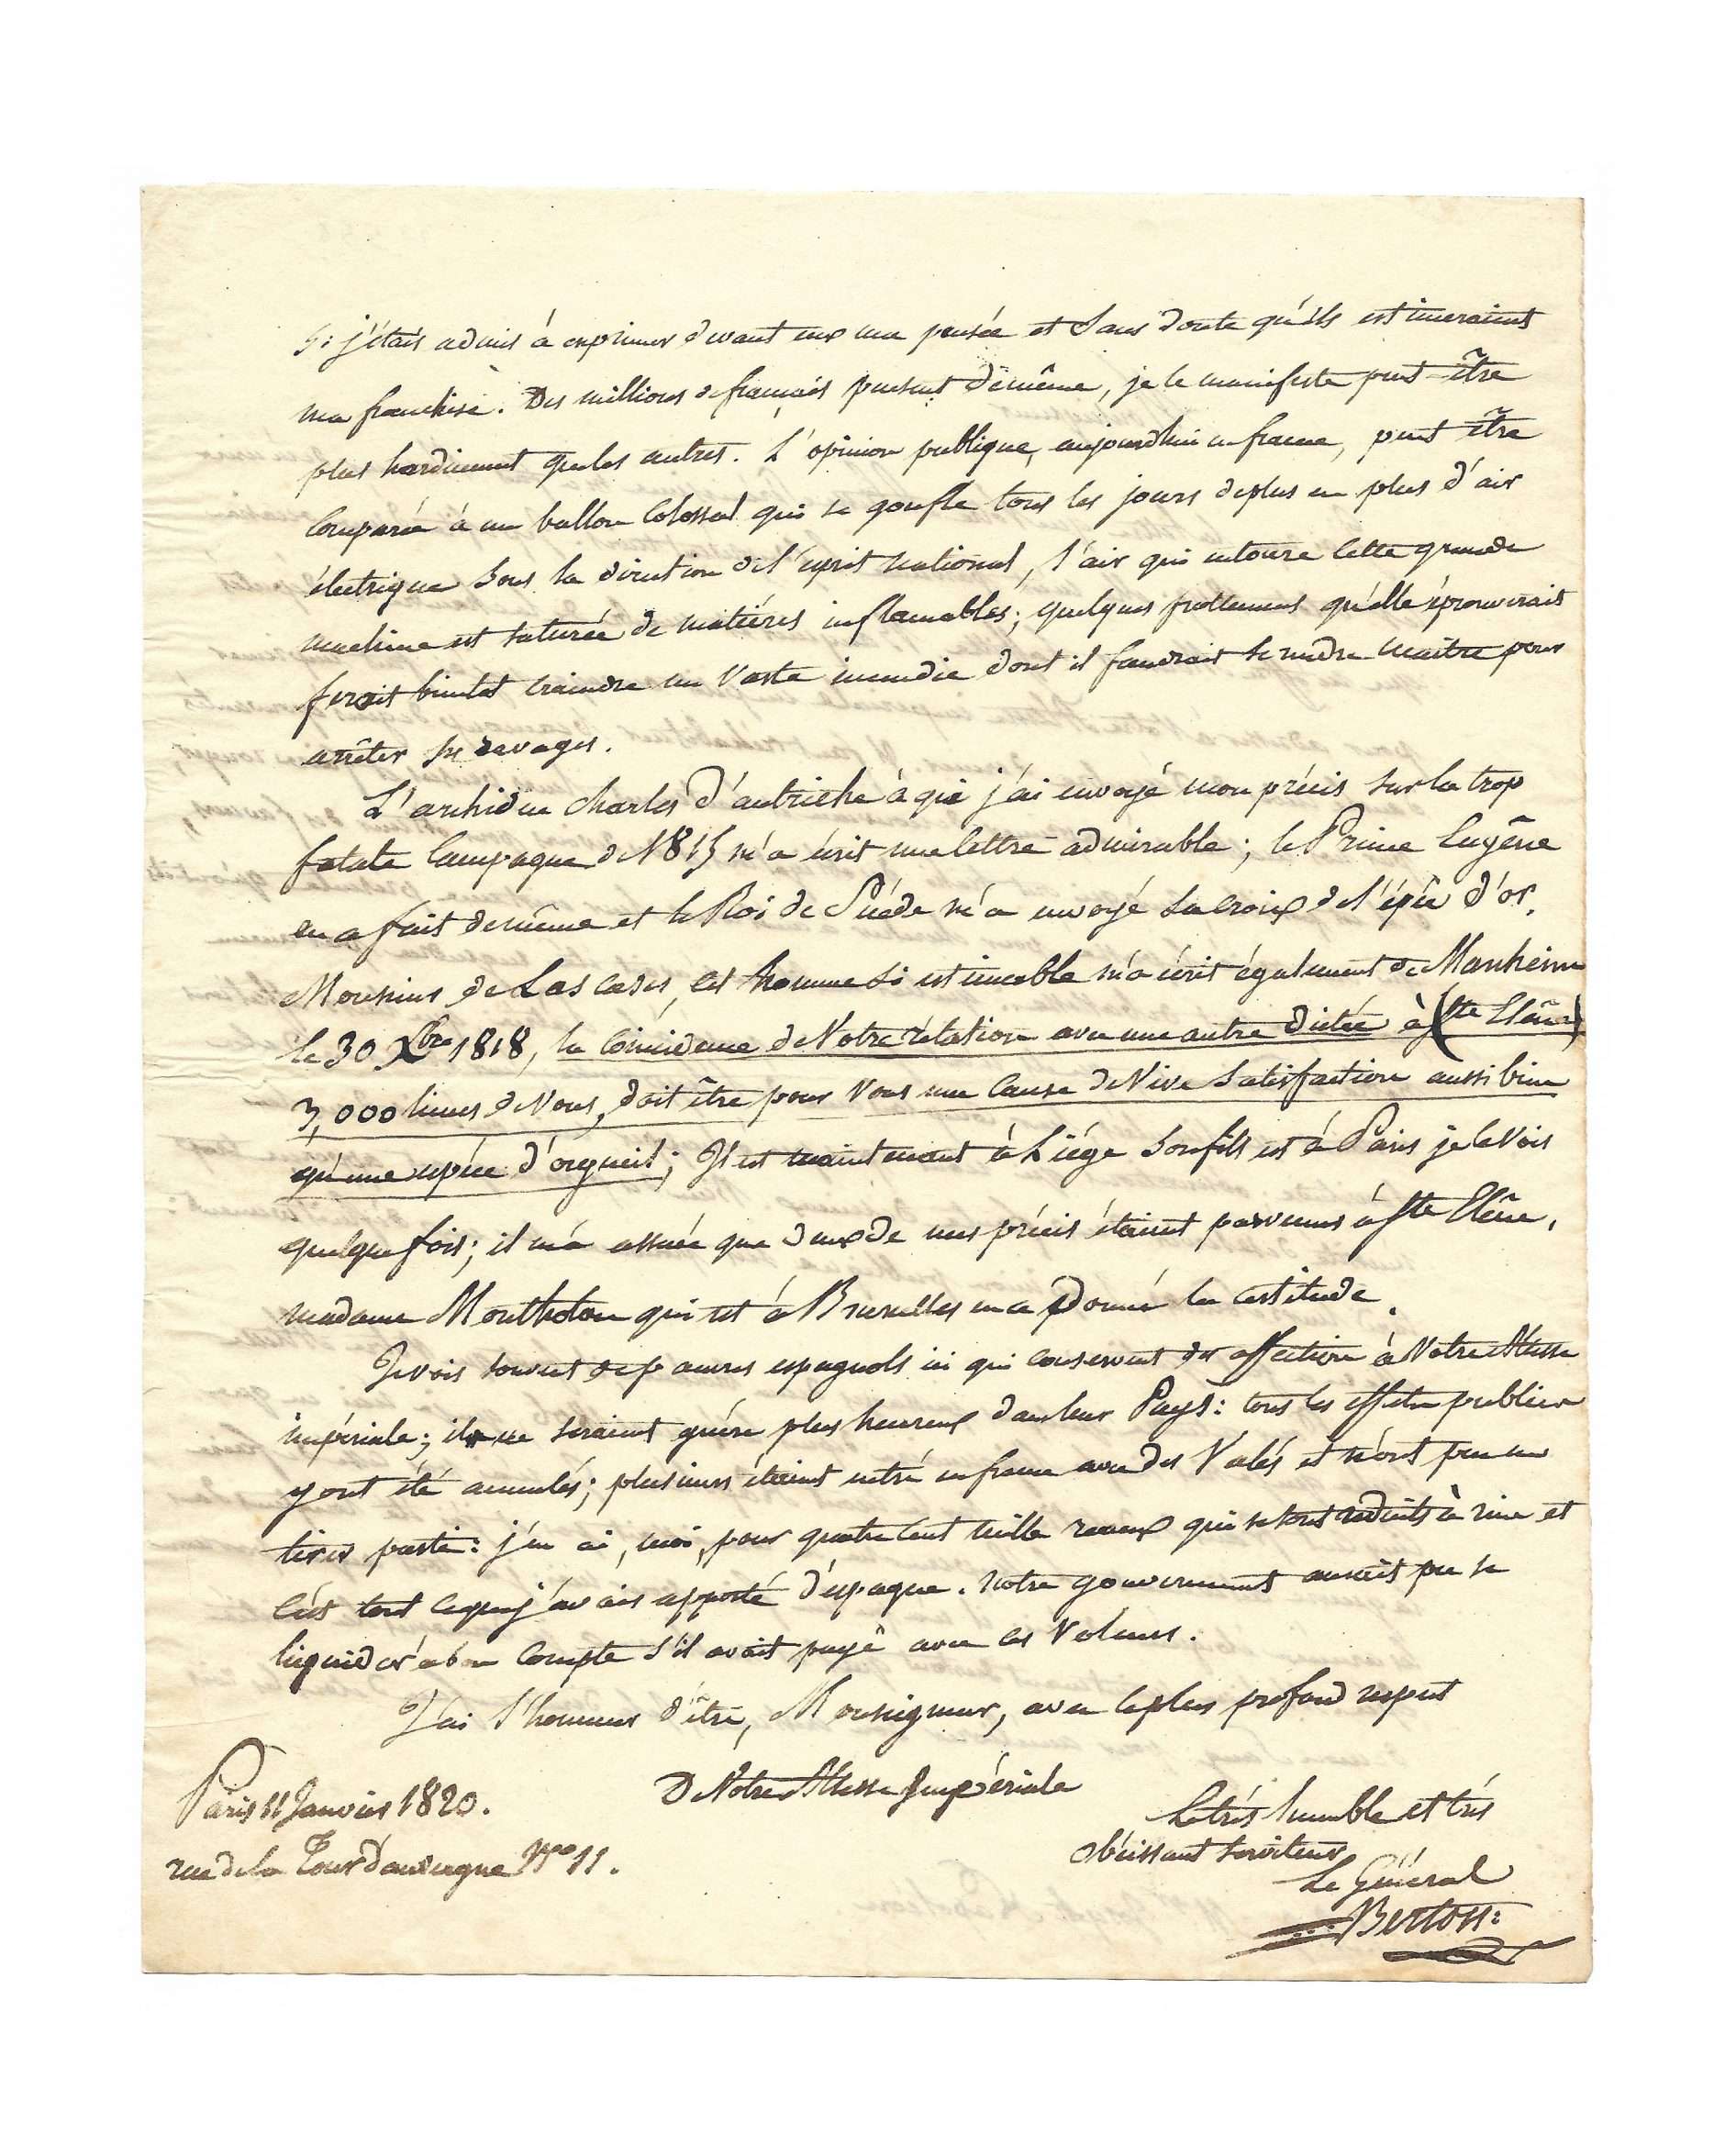 si j'étais admis à exprimer devant eux ma pensée et sans doute qu'ils estimeraient
ma franchise. Des millions de français pensent demême, je le manifeste peut-être
plus hardiment que les autres. L'opinion publique, aujourdhui en france, peut être
comparée à un ballon colossal qui se gonfle tous les jours deplus en plus d'air
électrique sous la direction de l'esprit national, l'air qui entoure cette grande
machine est saturée de matiéres inflamables; quelques frottemens qu'elle éprouverait
ferait bientot craindre un vaste incendie dont il faudrait se rendre maitre pour
arrêter ses ravages.
L'archiduc charles d'autriche à qui j'ai envoyé mon précis sur la trop
fatale campagne de 1815 m'a écrit une lettre admirable; le Prince Eugêne
en a fait demême et le Roi de Suéde m'a envoyé sa croix de l'épée d'or.
Monsieur de Las cases, cet homme si estimable m'a écrit également de Manheim
le 30 Xbre 1818, la coincidence de Votre rélation avec une autre dictée à (Ste Elêne)
3,000 lieues de Vous, doit être pour Vous une cause de Vive satisfaction aussi bien
qu'une espéce d'orgueil; Il est maintenant à Liége son fils est à Paris je le Vois
quelque fois; il m'a assuré que deux de mes précis étaient parvenus à Ste Elêne,
madame Montholon qui est à Bruxelles m'en a donné la certitude.
Je vois souvent de pauvres espagnols ici qui conservent de l'affection à Votre Altesse
impériale; ils ne seraient guére plus heureux dans leur Pays: tous les effets publics
y ont été annulés; plusieurs étaient entré en france avec des Valés et n'ont pu en
tirer parti: j'en ai, moi, pour quatre cent mille reaux qui se sont reduits à rien et
c'est tout ceque j'avais apporté d'espagne. Notre gouvernement aurait pu se
liquider à bon compte s'il avait payé avec ces Valeurs.
J'ai l'honneur d'être, Monseigneur, avec le plus profond respect
De Votre Altesse Impériale
Le trés humble et trés
obéissant serviteur
Le Général
Berton
Paris 11 Janvier 1820.
rue de la Tour d'auvergne No 11.